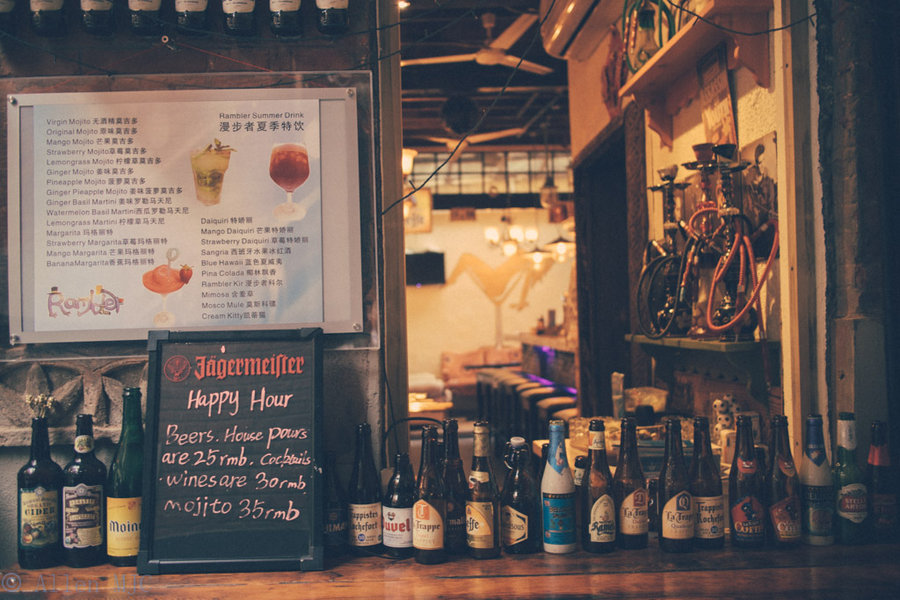 Virgin Mojito 无酒精莫吉多
Original Mojito 原味莫吉多
Mango Mojito 芒果莫吉多
Strawberry Mojito草莓莫吉多
Lemongrass Mojito 柠檬草莫吉多
Ginger Mojito 姜味莫吉多
Pineapple Mojito 菠萝莫吉多
Ginger Pieapple Mojito 姜味菠萝莫吉多
Ginger Basil Martini 姜味罗勒马天尼
Watermelon Basil Martini西瓜罗勒马天尼
Lemongrass Martini 柠檬草马天尼
Margarita 玛格丽特
Strawberry Margarita草莓玛格丽特
Mango Margarita 芒果玛格丽特
BananaMargarita香蕉玛格丽特
Rambler
Rambler Summer Drink
漫步者夏季特饮
Daiquiri 特娇丽
Mango Daiquiri 芒果特娇丽
Strawberry Daiquiri 草莓特娇丽
Sangria 西班牙水果冰红酒
Blue Hawaii 蓝色夏威夷
Pina Colada 椰林飘香
Rambler Kir 漫步者科尔
Mimosa 含羞草
Mosco Mule 莫斯科骡
Cream Kitty凯蒂猫
Jägermeister
Happy Hour
Beers. House pours
are 25 rmb. Cocktails.
wines are 30 rmb
mojito 35 rmb
CIDER
Moinette
Trappistes
Rochefort
Duvel
La Trappe
Kasteel
La Trappe
La Trappe
Rochefort